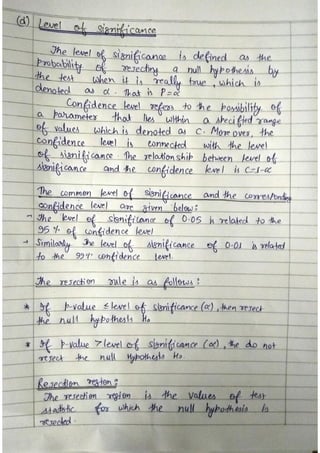 (d) Level of Significance
The level of significance is defined as the
Probability of rejecting a null hypothesis by
the test when it is really true, which is
denoted as α. That is P=α
Confidence level refers to the possibility of
a parameter that lies within a specified range
of values which is denoted as C. More over, the
confidence level is connected with the level
of significance The relationship between level of
significance and the confidence level is C=1-α
The common level of significance and the corresponding
confidence level are given below:
- The level of significance of 0.05 is related to the
95 % of confidence level
- Similarly The level of significance of 0.01 is related
to the 99% confidence level.
The rejection rule is as follows:
* If p-value ≤ level of significance (α), then reject
the null hypothesis Ho
* If p-value > level of significance (α), the do not
reject the null Hypothesis Ho.
Rejection region:
The rejection region is the values of test
statistic for which the null hypothesis is
rejected.